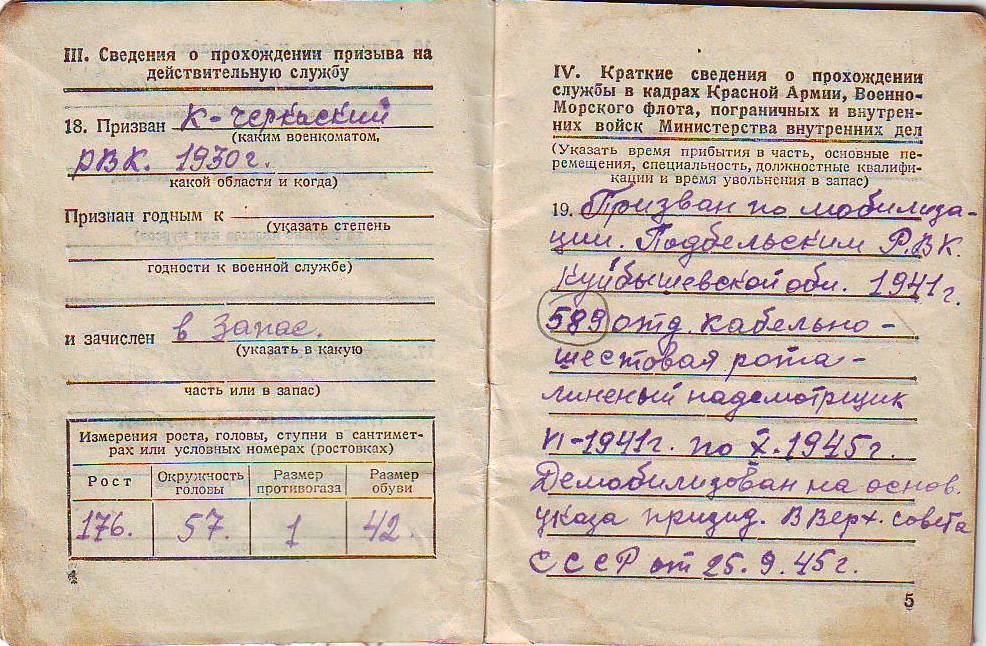 III. Сведения о прохождении призыва на
действительную службу
18. Призван К-Черкасский
(каким военкоматом,
РВК. 1930г.
какой области и когда)
Признан годным к
(указать степень
годности к военной службе)
и зачислен в Запас.
(указать в какую
часть или в запас)
Измерения роста, головы, ступни в сантимет-
рах или условных номерах (ростовках)
Рост Окружность головы Размер противогаза Размер обуви
176. 57. 1 42.
4
IV. Краткие сведения о прохождении
службы в кадрах Красной Армии, Военно-
Морского флота, пограничных и внутрен-
них войск Министерства внутренних дел
(Указать время прибытия в часть, основные пе-
ремещения, специальность, должностные квалифи-
кации и время увольнения в запас)
19. Призван по мобилиза-
ции. Подбельским Р.В.К.
Куйбышевской обл. 1941г.
589 отд. кабельно-
шестовая рота-
линеный надсмотрщик
VI-1941г. по X.1945г.
Демобилизован на основ.
указа призид. В Верх. совета
СССР от 25.9.45г.
5